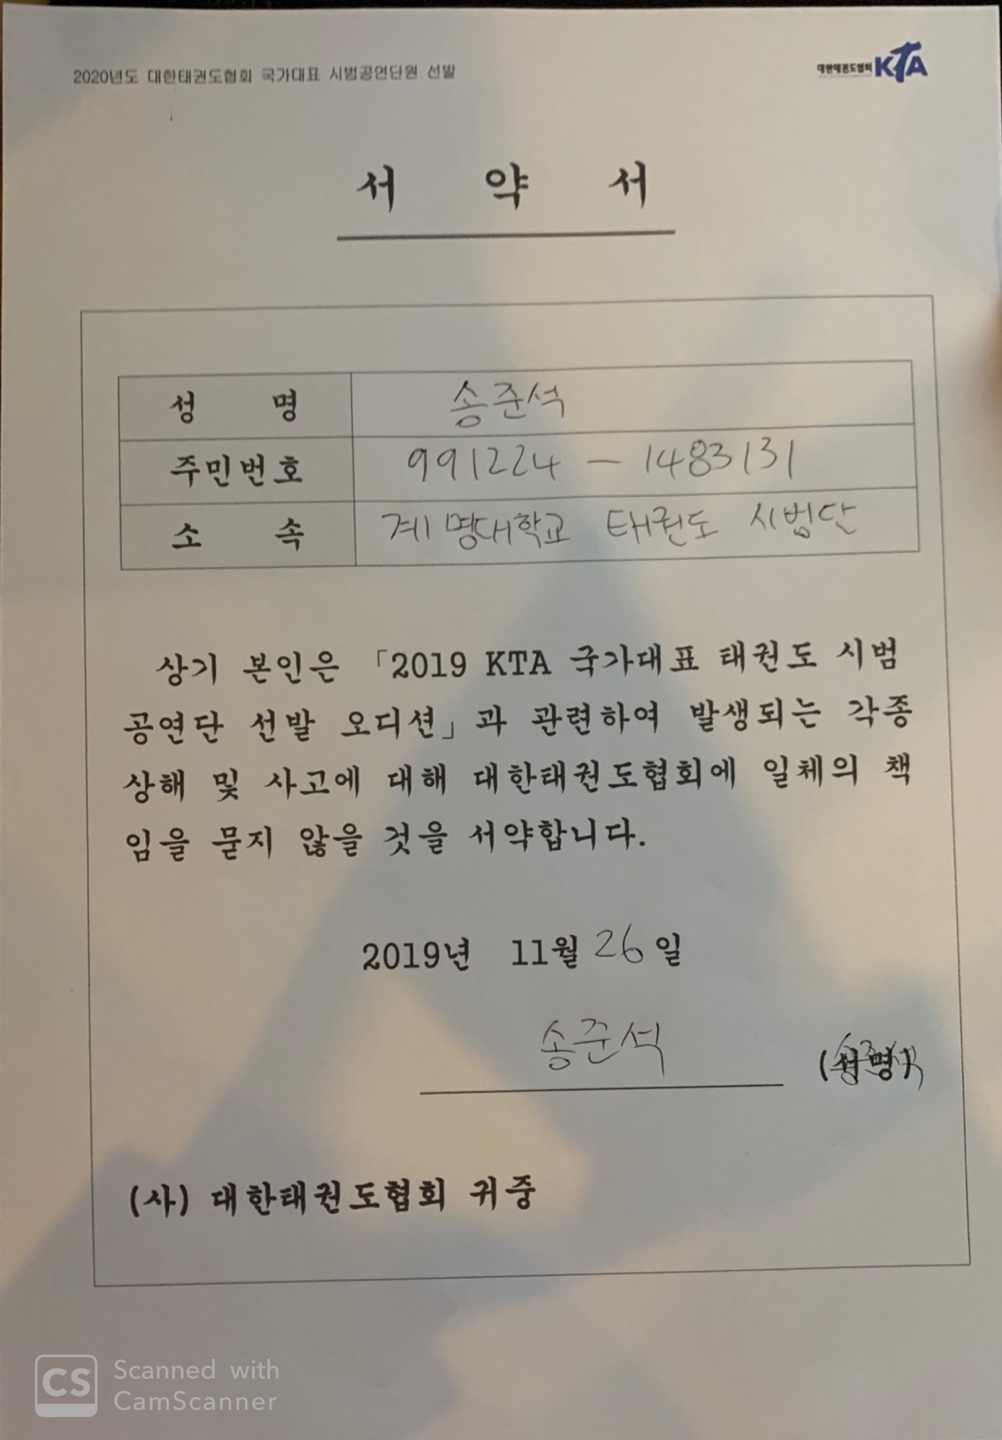 2020년도 대한태권도협회 국가대표 시범공연단원 선발
대한태권도협회 KTA
서 약 서
성 명 송준석
주민번호 991224 - 1483131
소 속 계명대학교 태권도 시범단
상기 본인은 「2019 KTA 국가대표 태권도 시범
공연단 선발 오디션」과 관련하여 발생되는 각종
상해 및 사고에 대해 대한태권도협회에 일체의 책
임을 묻지 않을 것을 서약합니다.
2019년 11월 26일
송준석 (서명)
(사) 대한태권도협회 귀중
CS Scanned with
CamScanner